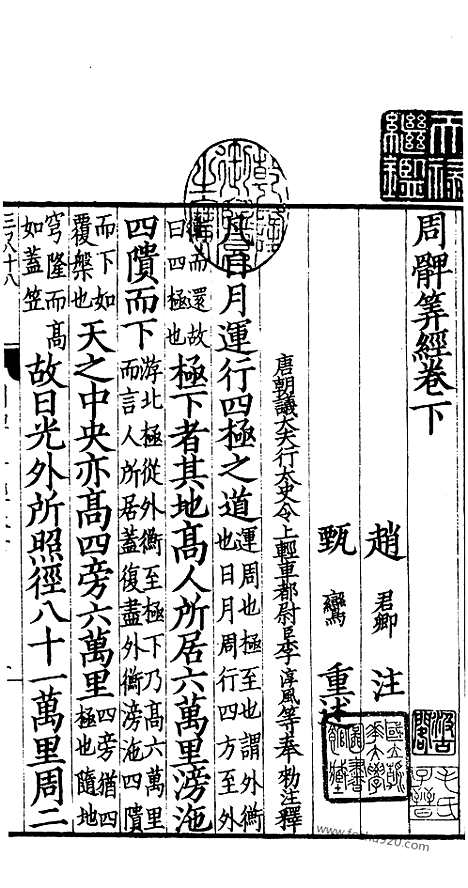 周髀筭經卷下
趙君卿注
甄鸞重述
唐朝議大夫行太史令上輕車都尉臣李淳風等奉勑注釋
凡日月運行四極之道運周也極至也謂外衡也日月周行四方至外
衡而還故曰四極也極下者其地高人所居六萬里滂沲
四隤而下游北極從外衡至極下乃高六萬里而言人所居蓋復盡外衡滂沲四隤
而下如覆槃也天之中央亦高四旁六萬里四旁猶四極也隨地
穹隆而高如蓋笠故日光外所照徑八十一萬里周二
三八十八
天祿繼鑑
乾隆御覽之寶
汲古閣
毛氏子晉
www.fosha920.com